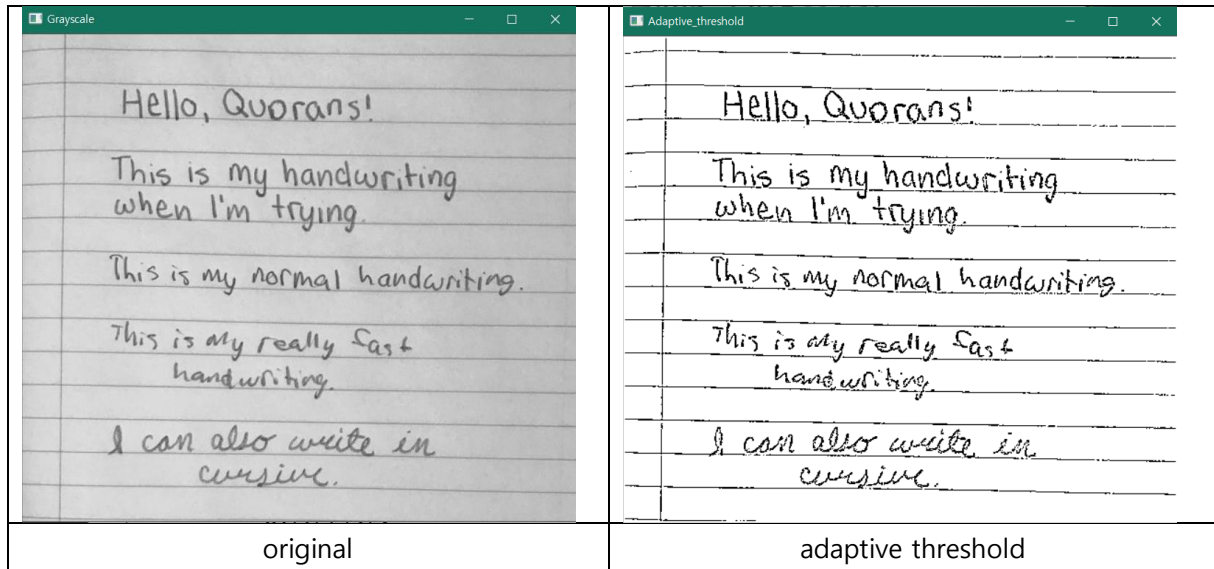 Grayscale
Hello, Quorans!
This is my handwriting
when I'm trying.
This is my normal handwriting.
This is my really fast
handwriting.
I can also write in
cursive.
original
Adaptive_threshold
Hello, Quorans!
This is my handwriting
when I'm trying.
This is my normal handwriting.
This is my really fast
handwriting.
I can also write in
cursive.
adaptive threshold